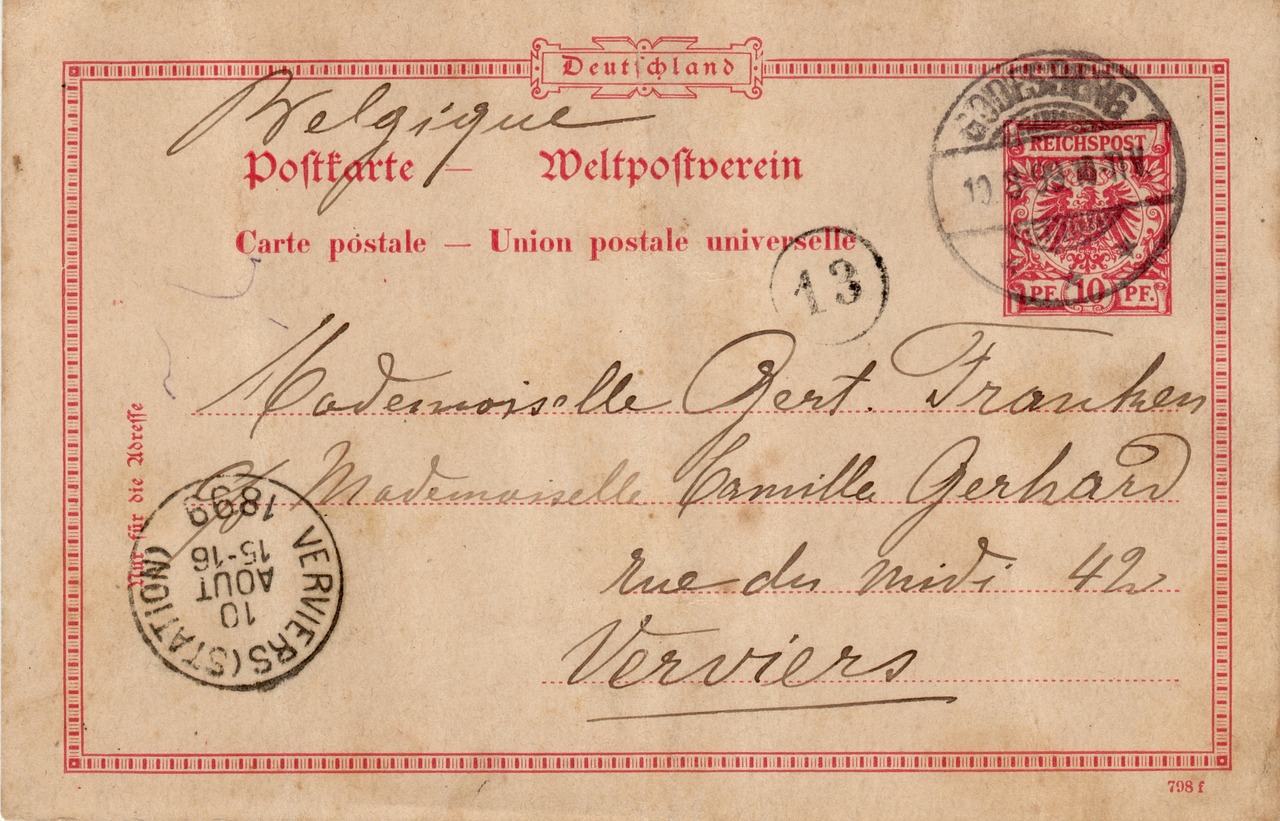 Deutschland
Belgique
Postkarte — Weltpostverein
Carte postale — Union postale universelle
GODESBERG
REICHSPOST
10. 8. 99.
PF. 10 PF.
13
Mademoiselle Gert. Franken
c/ Mademoiselle Camille Gerhard
rue du midi 42
Verviers
Nur für die Adresse
VERVIERS (STATION)
10
AOUT
15-16
1899
798 f